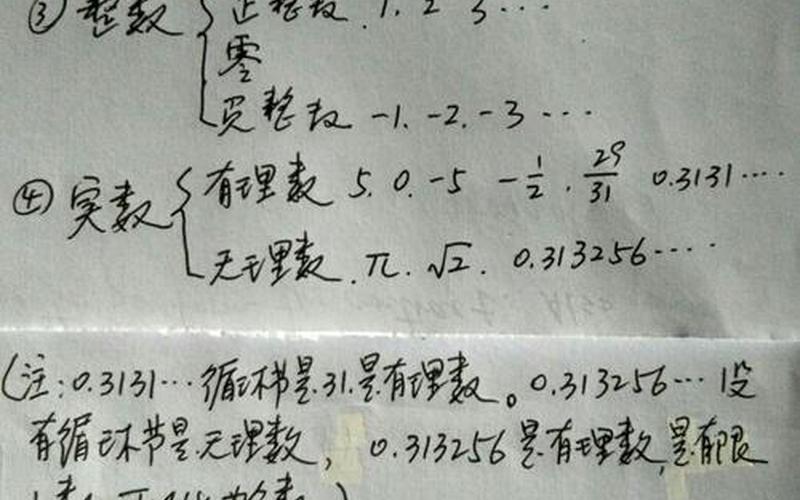 ③整数 正整数 1. 2 3 ···
零
负整数 -1. -2. -3 ···
④实数 有理数 5. 0. -5 -1/2. 29/31 0.3131····
无理数. π. √2. 0.313256····
(注:0.3131···循环节是31.是有理数。0.313256···没
有循环节是无理数, 0.313256是有理数,是有限